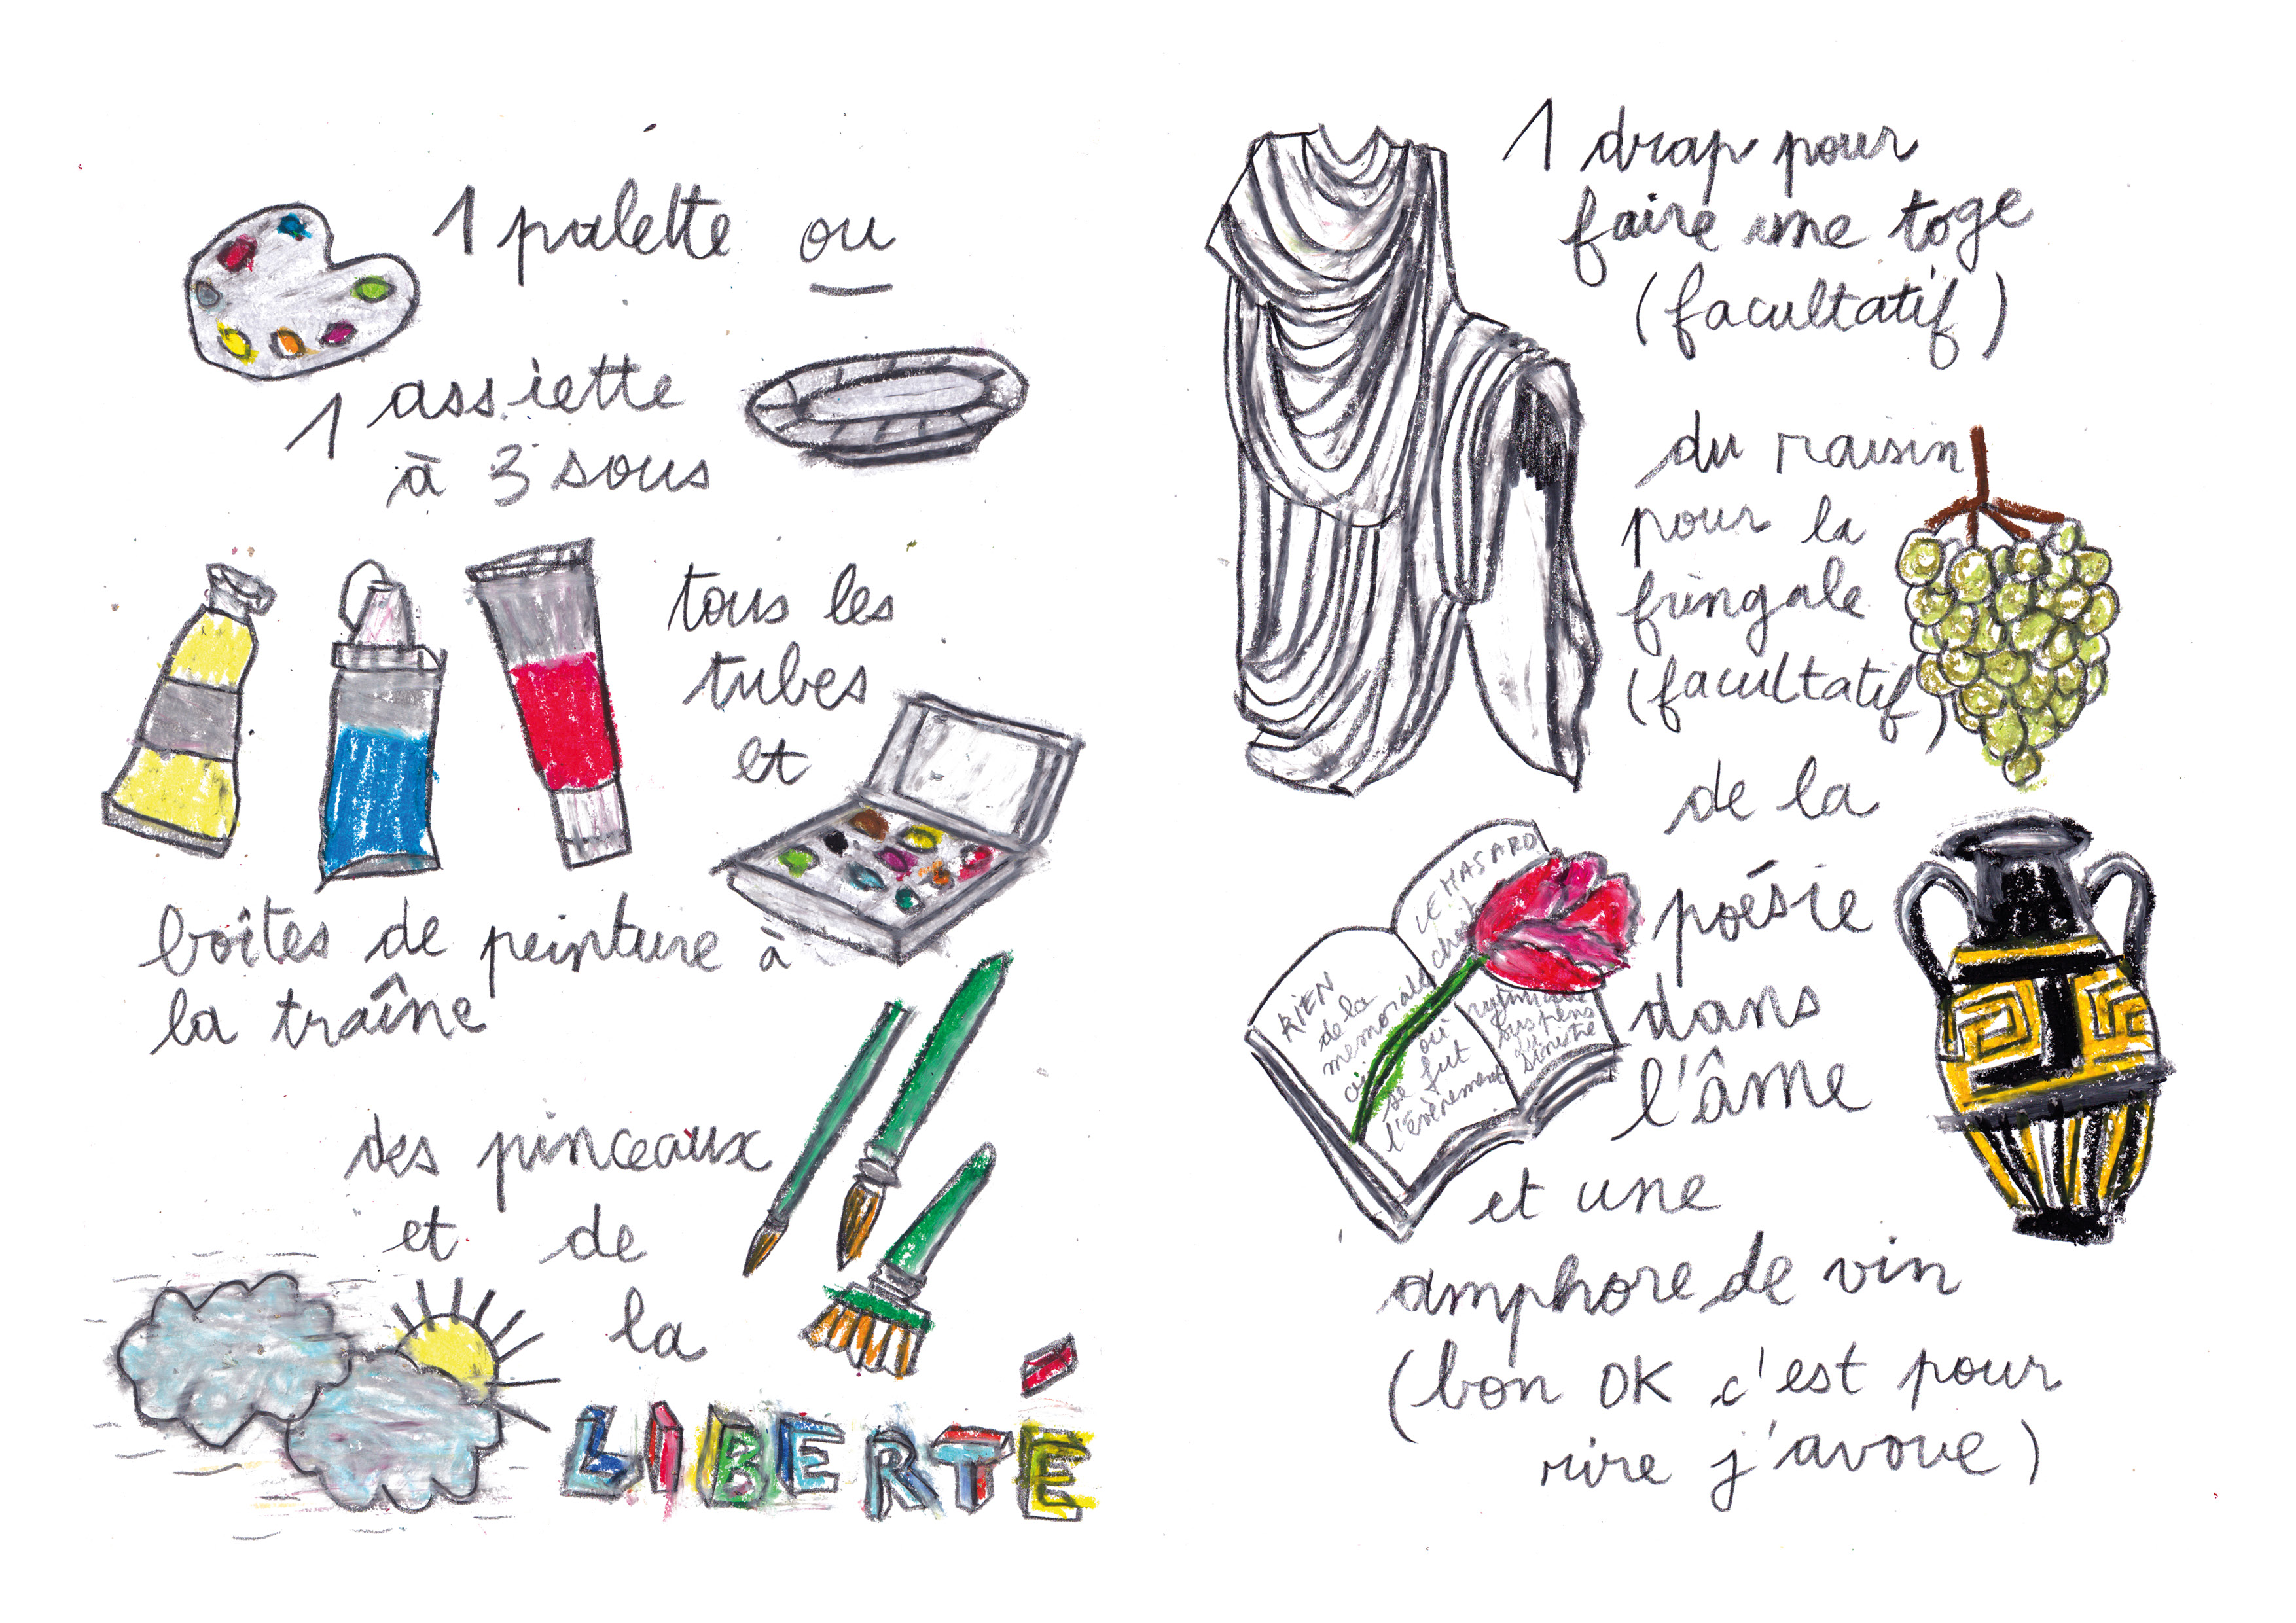 1 palette ou
1 assiette
à 3 sous
tous les
tubes
et
boîtes de peinture à
la traîne
des pinceaux
et de
la
LIBERTÉ
1 drap pour
faire une toge
(facultatif)
du raisin
pour la
fringale
(facultatif)
de la
poésie
dans
l'âme
et une
amphore de vin
(bon OK c'est pour
rire j'avoue)
RIEN
de la
mémorable
où
se fut
l'évènement
LE HASARD
choit
rythmique
suspens
du
sinistre